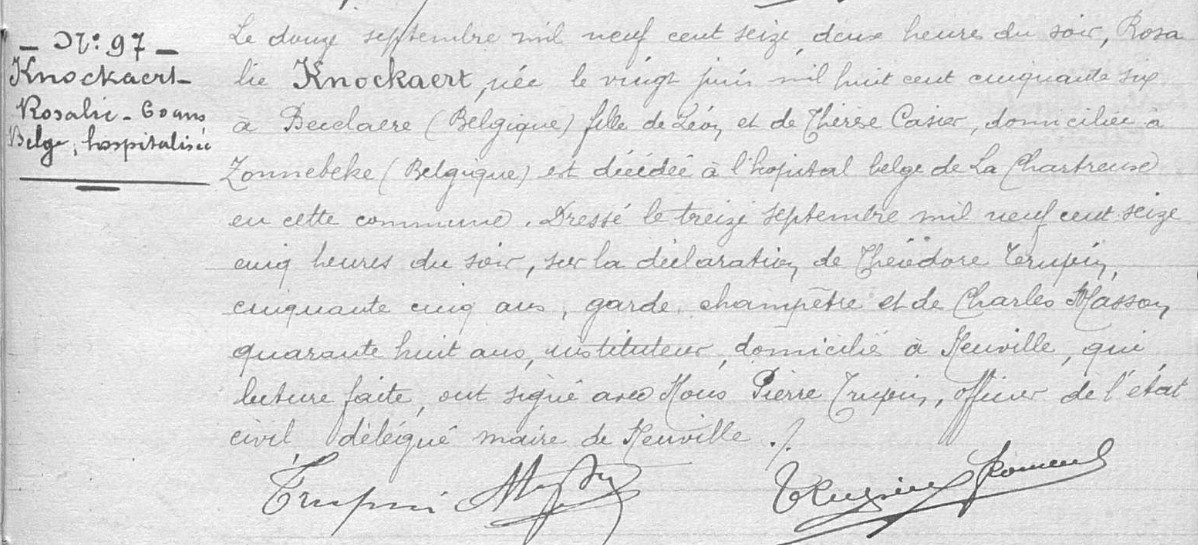 - N° 97 -
Knockaert
Rosalie - 60 ans
Belge, hospitalisée
Le douze septembre mil neuf cent seize, deux heures du soir, Rosa
lie Knockaert, née le vingt juin mil huit cent cinquante six
à Becelaere (Belgique) fille de Léon et de Thérèse Casier, domiciliée à
Zonnebeke (Belgique) est décédée à l'hopital belge de La Chartreuse
en cette commune. Dressé le treize septembre mil neuf cent seize
cinq heures du soir, sur la déclaration de Théodore Trupin,
cinquante cinq ans, garde champêtre et de Charles Masson,
quarante huit ans, instituteur, domiciliés à Neuville, qui,
lecture faite, ont signé avec Nous Pierre Trupin, officier de l'état
civil délégué maire de Neuville ./.
Trupin